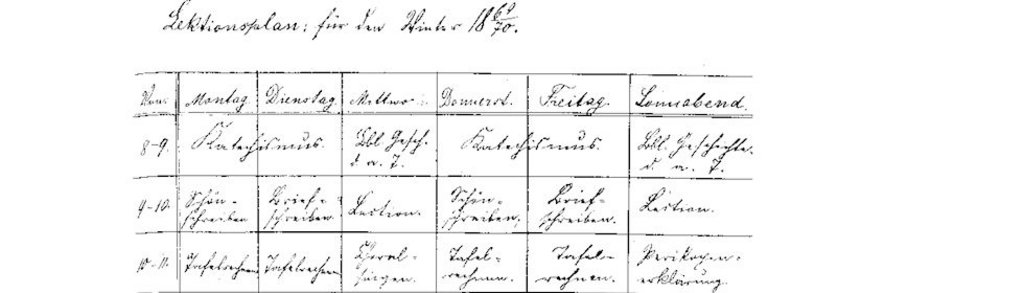 Lektionsplan: für den Winter 18 69/70.
Montag. Dienstag. Mittwo Donnerst. Freitag. Sonnabend.
8-9. Katechismus. Bbl. Gesch. d. a. T. Katechismus. Bbl. Geschichte. d. a. T.
9-10. Schön-schreiben Brief-schreiben. Lection. Schön-schreiben. Brief-schreiben. Lection.
10-11. Tafelrechnen Tafelrechnen Choral-singen. Tafel-rechnen. Tafel-rechnen. Perikopen-erklärung.